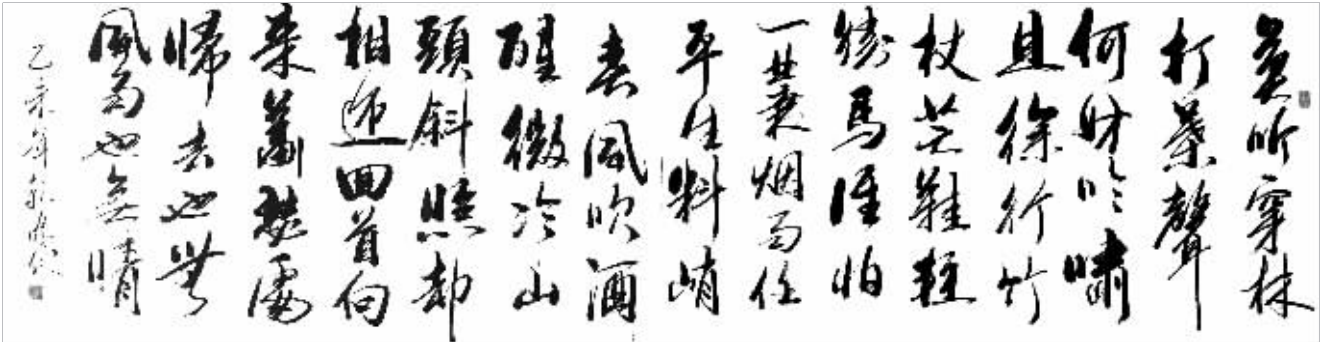 莫听穿林
打葉聲
何妨吟嘯
且徐行竹
杖芒鞋輕
勝馬誰怕
一蓑烟雨任
平生料峭
春風吹酒
醒微冷山
頭斜照却
相迎回首向
来蕭瑟處
歸去也無
風雨也無晴
乙未年